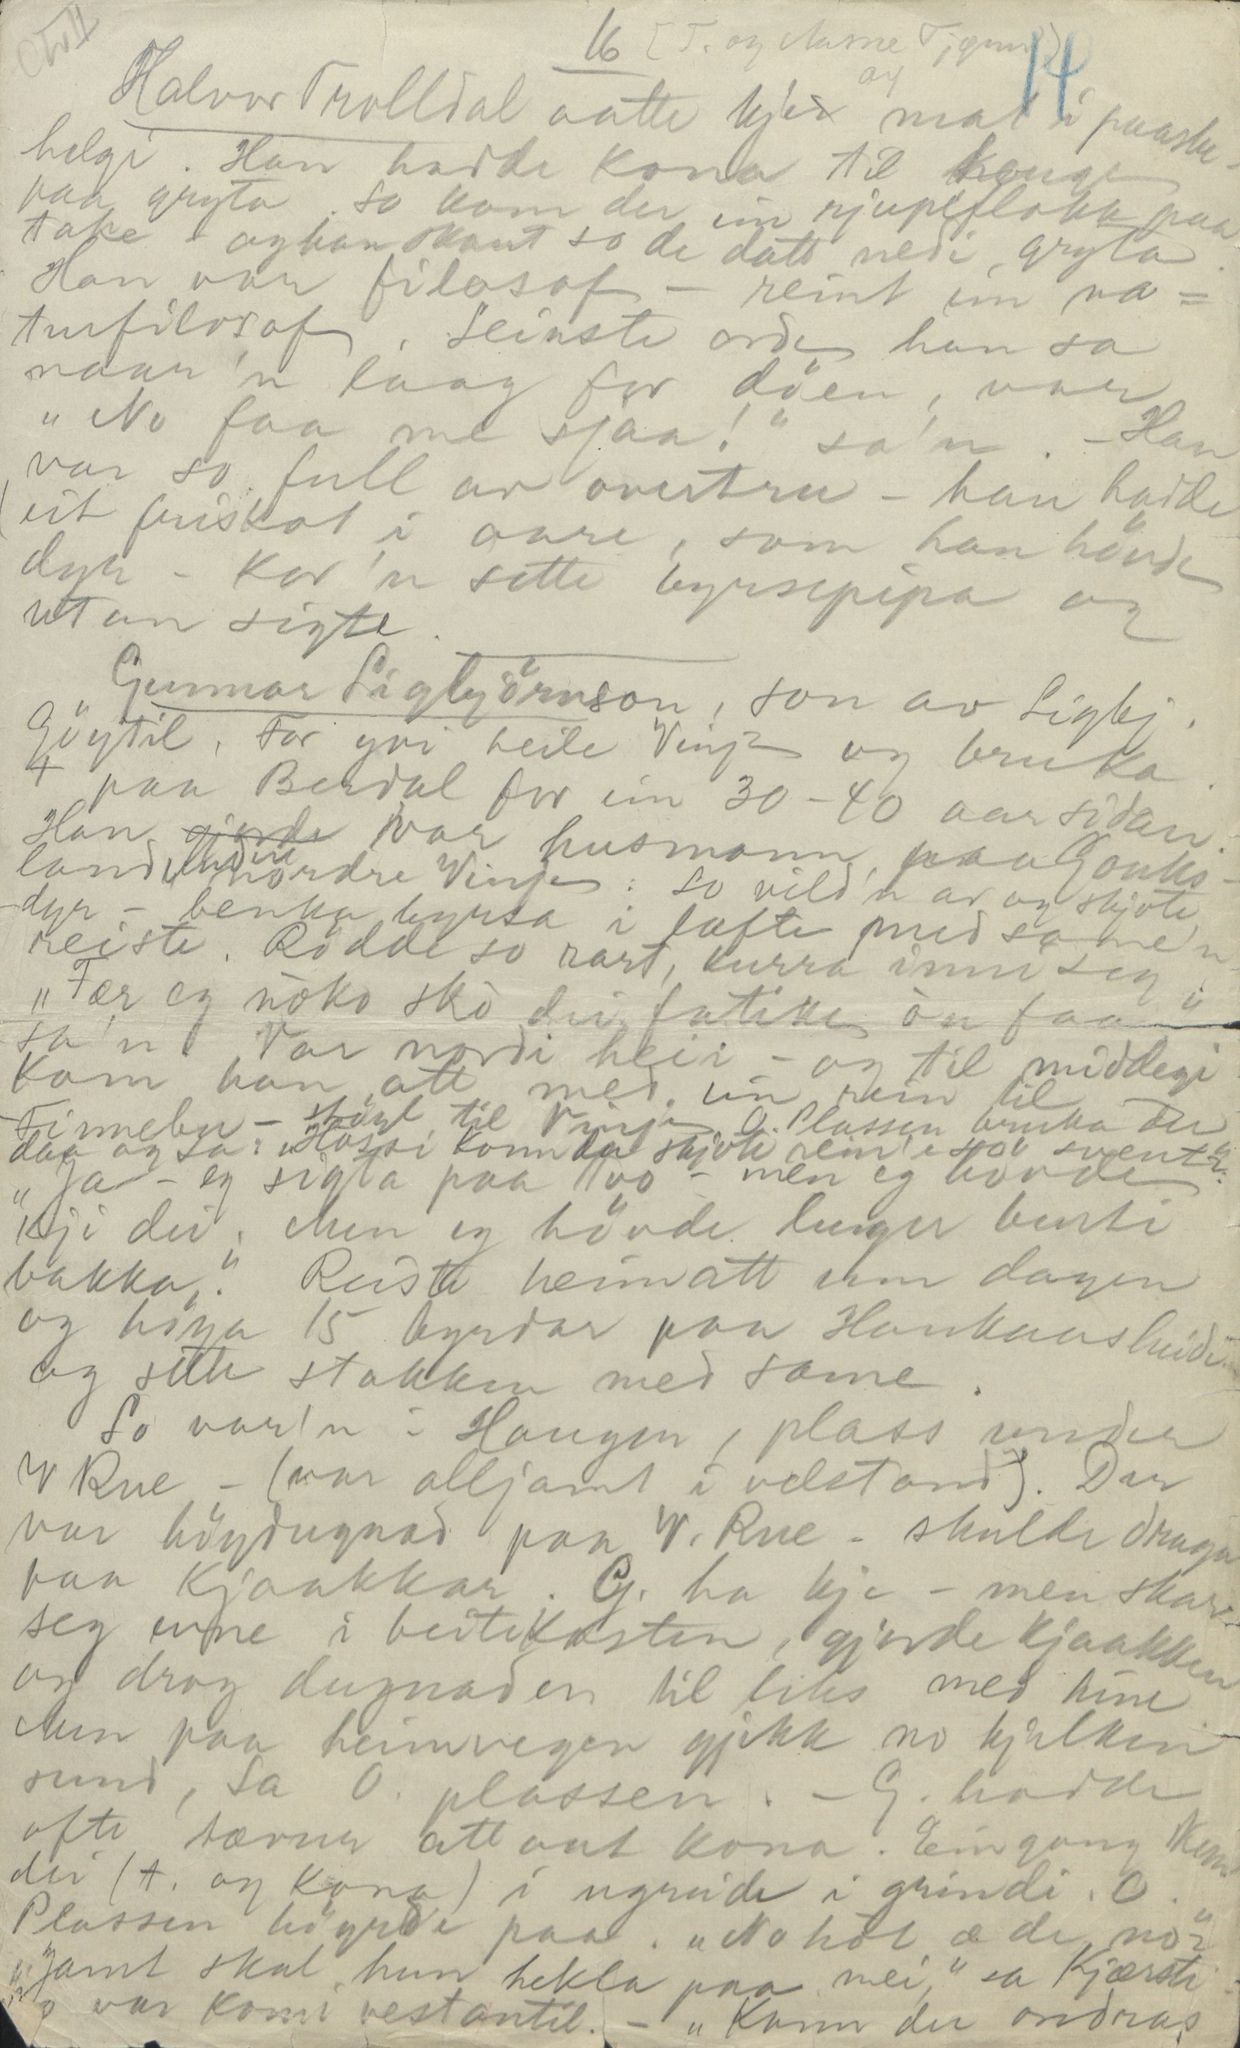 16 [T. og Aasne Tjønn]
14
Halvor Trolldal aatte kje av mat i paaske-
helgi. Han hadde kona til hauge
paa gryta. So kom der ein rjupeflokk paa
take - og han skaut so de datt nedi gryta.
Han var filosof - reint ein na=
turfilosof. Seinste orde han sa
naar'n laag for döen, var
"No faa me sjaa!" sa'n. - Han
var so full av overtru - han hadde
eit feiskot i aare, som han hövde
dyr - kor'n sette byrsepipa og
utan sigte.
Gunnar Sigbjörnson, son av Sigbj.
Göytil. For yvi heile Vinje og bruka.
+ paa Berdal for ein 30-40 aar sidan.
Han gjorde var husmann paa Gauks-
land, nordre Vinje: So vild'n av og skjote
dyr - benka byrsa i lofte med same'n
reiste. Rödde so rart, kurra inni seg.
"Fær eg noko sko dei fatike òn faa"
sa'n. Var nordi heii - og til middegi
kom han att med ein rein til
Finnebu - skaut til Vinje. O. Plassen bruka der
daa og sa: "Hossi konn du skjote rein i so svent?"
"Ja - eg sigta paa tvo - men eg hövde
kji dei. Men eg hövde lenger burti
bakka." Reiste heimatt um dagen
og höya 15 byrdar paa Haukaasheidi
og sette stakken med same.
So var'n i Haugen, plass under
V Rue - (var alljamt i velstand). Der
var höydugnad paa V. Rue - skulde draga
paa kjaakkar. G. ha kje - men skar
seg emne i beitekasten, gjorde kjaakken
og drog dugnaden til liks med hine.
Men paa heimvegen gjekk no kjelken
sund, sa O. plassen. - G. hadde
ofte tævra att aat kona. Eingong kom
dei (+. og kona) i ugreide i grindi. O.
Plassen höyrde paa. "No hot æ de no?"
"Jamt skal hun hekla paa mei," sa Kjærsti
o var komi vestantil. - "Konn du ondras